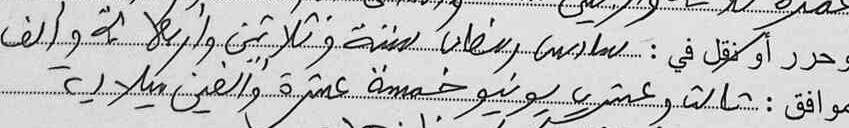 وحرر أو نقل في : سادس رمضان ستة وثلاثين وأربعمائة وألف
موافق : ثالث وعشرين يونيو خمسة عشرة وألفين ميلادية